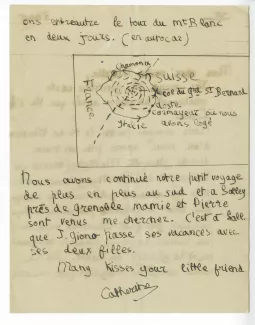 ons entreautre le tour du Mt Blanc
en deux jours. (en autocar)
Chamonix
SUISSE
France
col du grd St Bernard
Aoste
courmayeur où nous
avons logé
Italie
Nous avons continué notre petit voyage
de plus en plus au sud et a
près de grenoble mamie et Pierre
sont venus me chercher. C'est à
que J. Giono passe ses vacances avec
ses deux filles.
Many kisses your little friend
Catherine